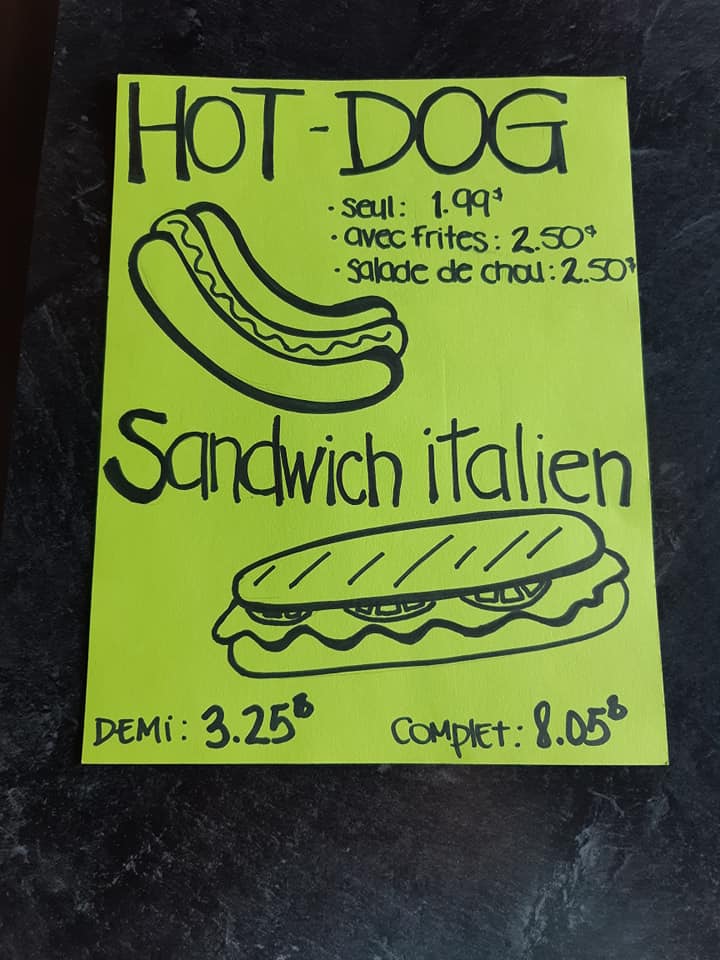 HOT-DOG
· seul: 1.99$
· avec frites: 2.50$
· salade de chou: 2.50$
Sandwich italien
DEMi: 3.25$
COMPLET: 8.05$